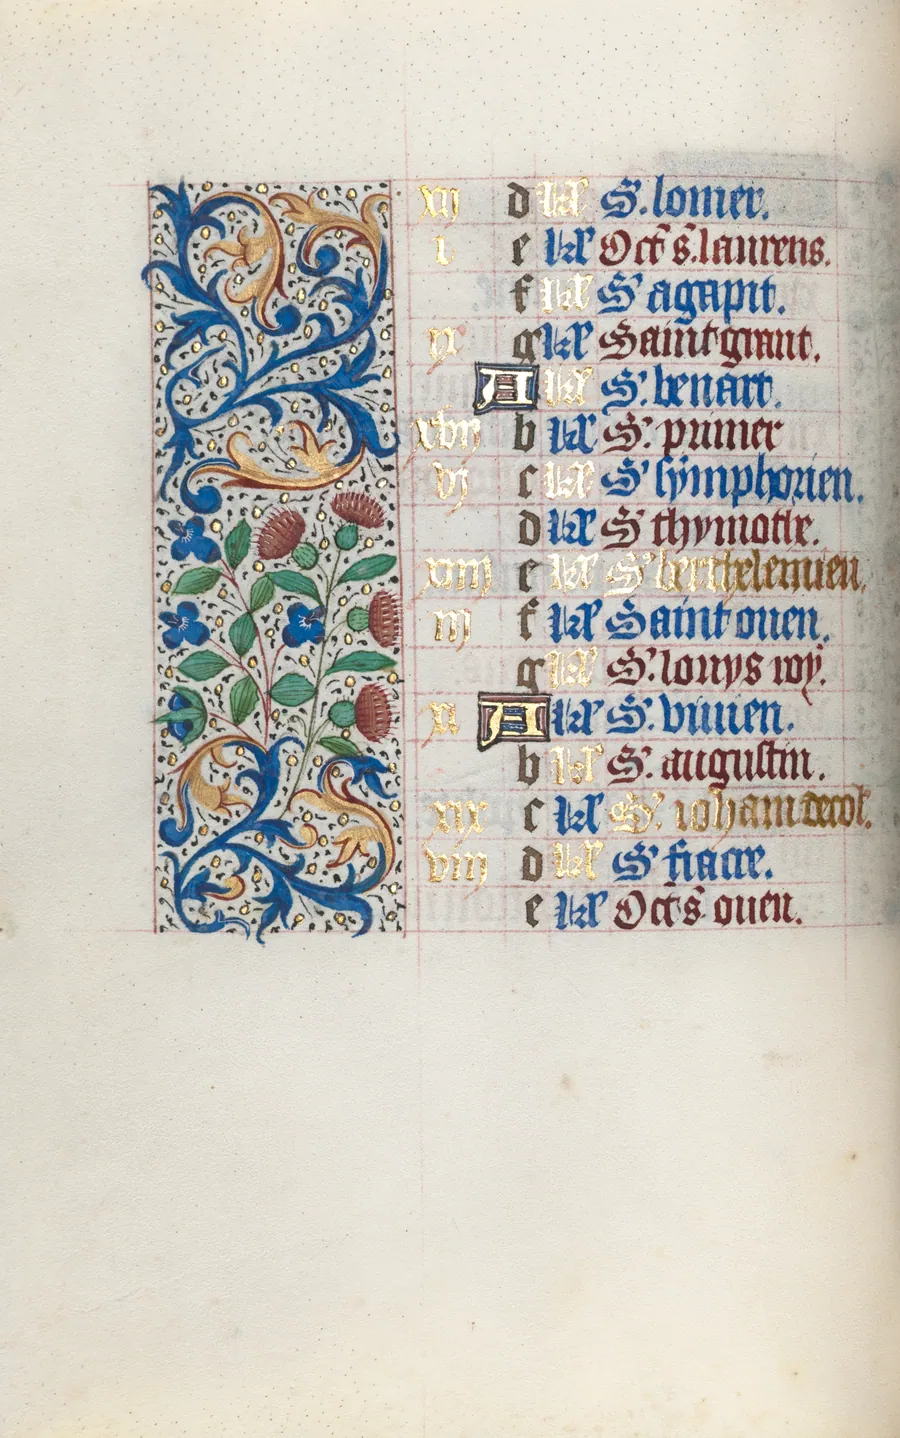 xij d kł S. lomer.
i e kł Oct s. laurens.
f kł S' agapit.
ix g kł Saint graut.
A kł S. benart.
xvij b kł S. primer
vj c kł S' symphorien.
d kł S' thymothe.
xiiij e kł S' berthelemieu.
iij f kł Saint ouen.
g kł S. louys roy.
xi A kł S. vivien.
b kł S. augustin.
xix c kł S. iohan decol.
viij d kł S' fiacre.
e kł Oct s. ouen.